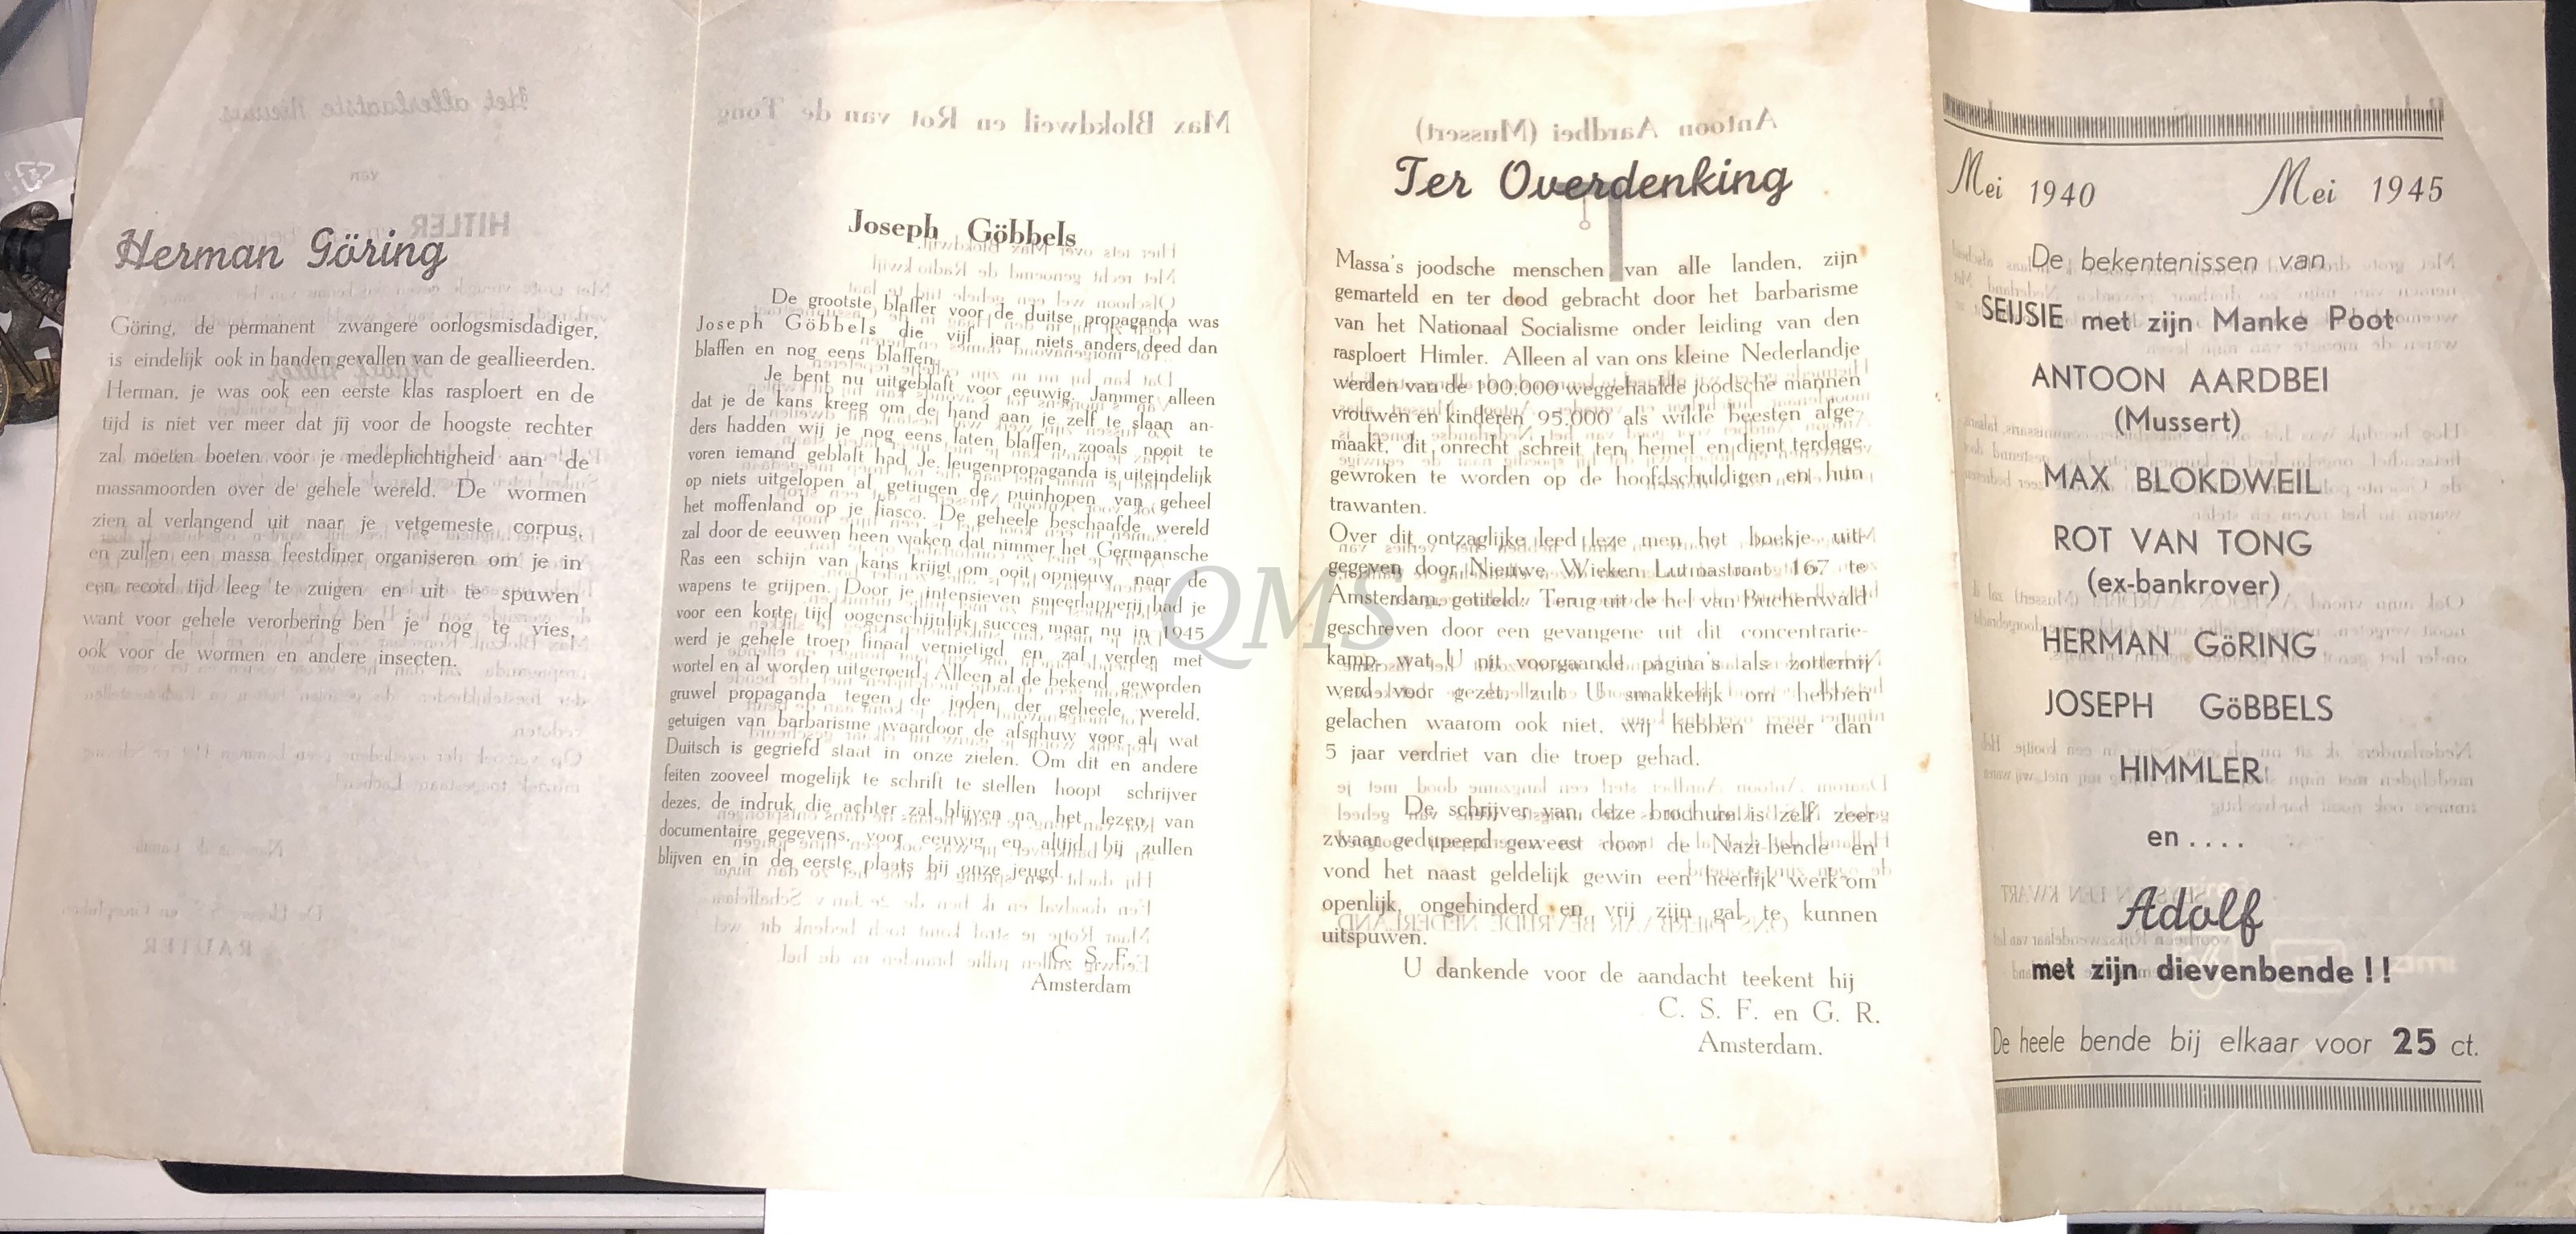 Herman Göring
Göring, de permanent zwangere oorlogsmisdadiger,
is eindelijk ook in handen gevallen van de geallieerden.
Herman, je was ook een eerste klas rasploert en de
tijd is niet ver meer dat jij voor de hoogste rechter
zal moeten boeten voor je medeplichtigheid aan de
massamoorden over de gehele wereld. De wormen
zien al verlangend uit naar je vetgemeste corpus,
en zullen een massa feestdiner organiseren om je in
een record tijd leeg te zuigen en uit te spuwen
want voor gehele verorbering ben je nog te vies,
ook voor de wormen en andere insecten.
Joseph Göbbels
De grootste blaffer voor de duitse propaganda was
Joseph Göbbels die vijf jaar niets anders deed dan
blaffen en nog eens blaffen.
Je bent nu uitgeblaft voor eeuwig. Jammer alleen
dat je de kans kreeg om de hand aan je zelf te slaan an-
ders hadden wij je nog eens laten blaffen, zooals nooit te
voren iemand geblaft had Je leugenpropaganda is uiteindelijk
op niets uitgelopen al getiugen de puinhopen van geheel
het moffenland op je fiasco. De geheele beschaafde wereld
zal door de eeuwen heen waken dat nimmer het Germaansche
Ras een schijn van kans krijgt om ooit opnieuw naar de
wapens te grijpen. Door je intensieven smeerlapperij had je
voor een korte tijd oogenschijnlijk succes maar nu in 1945
werd je gehele troep finaal vernietigd en zal verder met
wortel en al worden uitgeroeid. Alleen al de bekend geworden
gruwel propaganda tegen de joden der geheele wereld,
getuigen van barbarisme waardoor de afschuw voor al wat
Duitsch is gegriefd staat in onze zielen. Om dit en andere
feiten zooveel mogelijk te schrift te stellen hoopt schrijver
dezes, de indruk die achter zal blijven na het lezen van
documentaire gegevens, voor eeuwig en altijd bij zullen
blijven en in de eerste plaats bij onze jeugd.
C. S. F.
Amsterdam
Ter Overdenking
Massa's joodsche menschen van alle landen, zijn
gemarteld en ter dood gebracht door het barbarisme
van het Nationaal Socialisme onder leiding van den
rasploert Himler. Alleen al van ons kleine Nederlandje
werden van de 100.000 weggehaalde joodsche mannen
vrouwen en kinderen 95.000 als wilde beesten afge-
maakt, dit onrecht schreit ten hemel en dient terdege
gewroken te worden op de hoofdschuldigen en hun
trawanten.
Over dit ontzaglijke leed leze men het boekje uit-
gegeven door Nieuwe Wieken Lutmastraat 167 te
Amsterdam, getiteld: Terug uit de hel van Buchenwald
geschreven door een gevangene uit dit concentrarie-
kamp, wat U uit voorgaande pagina's als zotternij
werd voor gezet, zult U smakkelijk om hebben
gelachen waarom ook niet, wij hebben meer dan
5 jaar verdriet van die troep gehad.
De schrijver van deze brochure is zelf zeer
zwaar gedupeerd geweest door de Nazi-bende en
vond het naast geldelijk gewin een heerlijk werk om
openlijk, ongehinderd en vrij zijn gal te kunnen
uitspuwen.
U dankende voor de aandacht teekent hij
C. S. F. en G. R.
Amsterdam.
Mei 1940 Mei 1945
De bekentenissen van
SEIJSIE met zijn Manke Poot
ANTOON AARDBEI
(Mussert)
MAX BLOKDWEIL
ROT VAN TONG
(ex-bankrover)
HERMAN GöRING
JOSEPH GöBBELS
HIMMLER
en . . . .
Adolf
met zijn dievenbende ! !
De heele bende bij elkaar voor 25 ct.
QMS